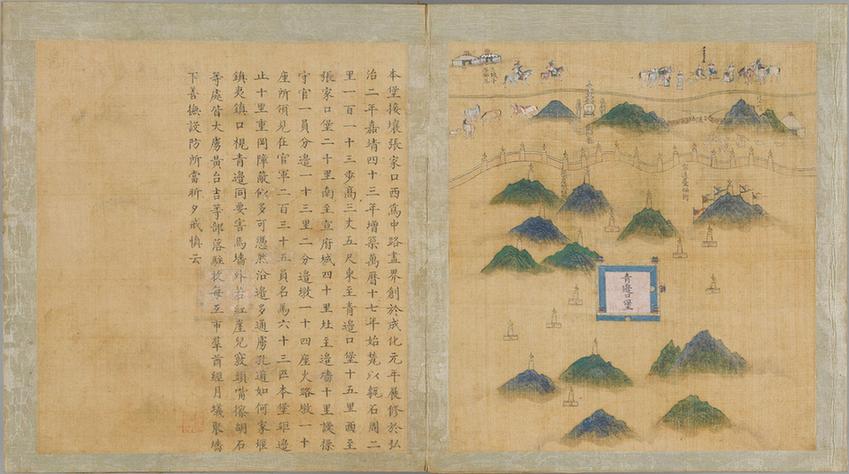 本堡接壤張家口西爲中路盡界創於成化元年展修於弘
治二年嘉靖四十三年增築萬曆十七年始甃以甎石周二
里一百一十三步高三丈五尺東至青邊口堡十五里西至
張家口堡二十里南至宣府城四十里北至邊墻十里設操
守官一員分邊一十三里二分邊墩一十四座火路墩一十
座所領見在官軍二百三十五員名馬六十三匹本堡距邊
止十里重岡障蔽似多可憑然沿邊多通虜孔道如何家堰
鎮夷鎮口視青邊同要害焉墻外若紅崖兒
等處皆大虜黃台吉等部落駐牧每互市羣酋經月蟻聚墻
下善撫設防所當祈夕戒慎云
青邊口堡